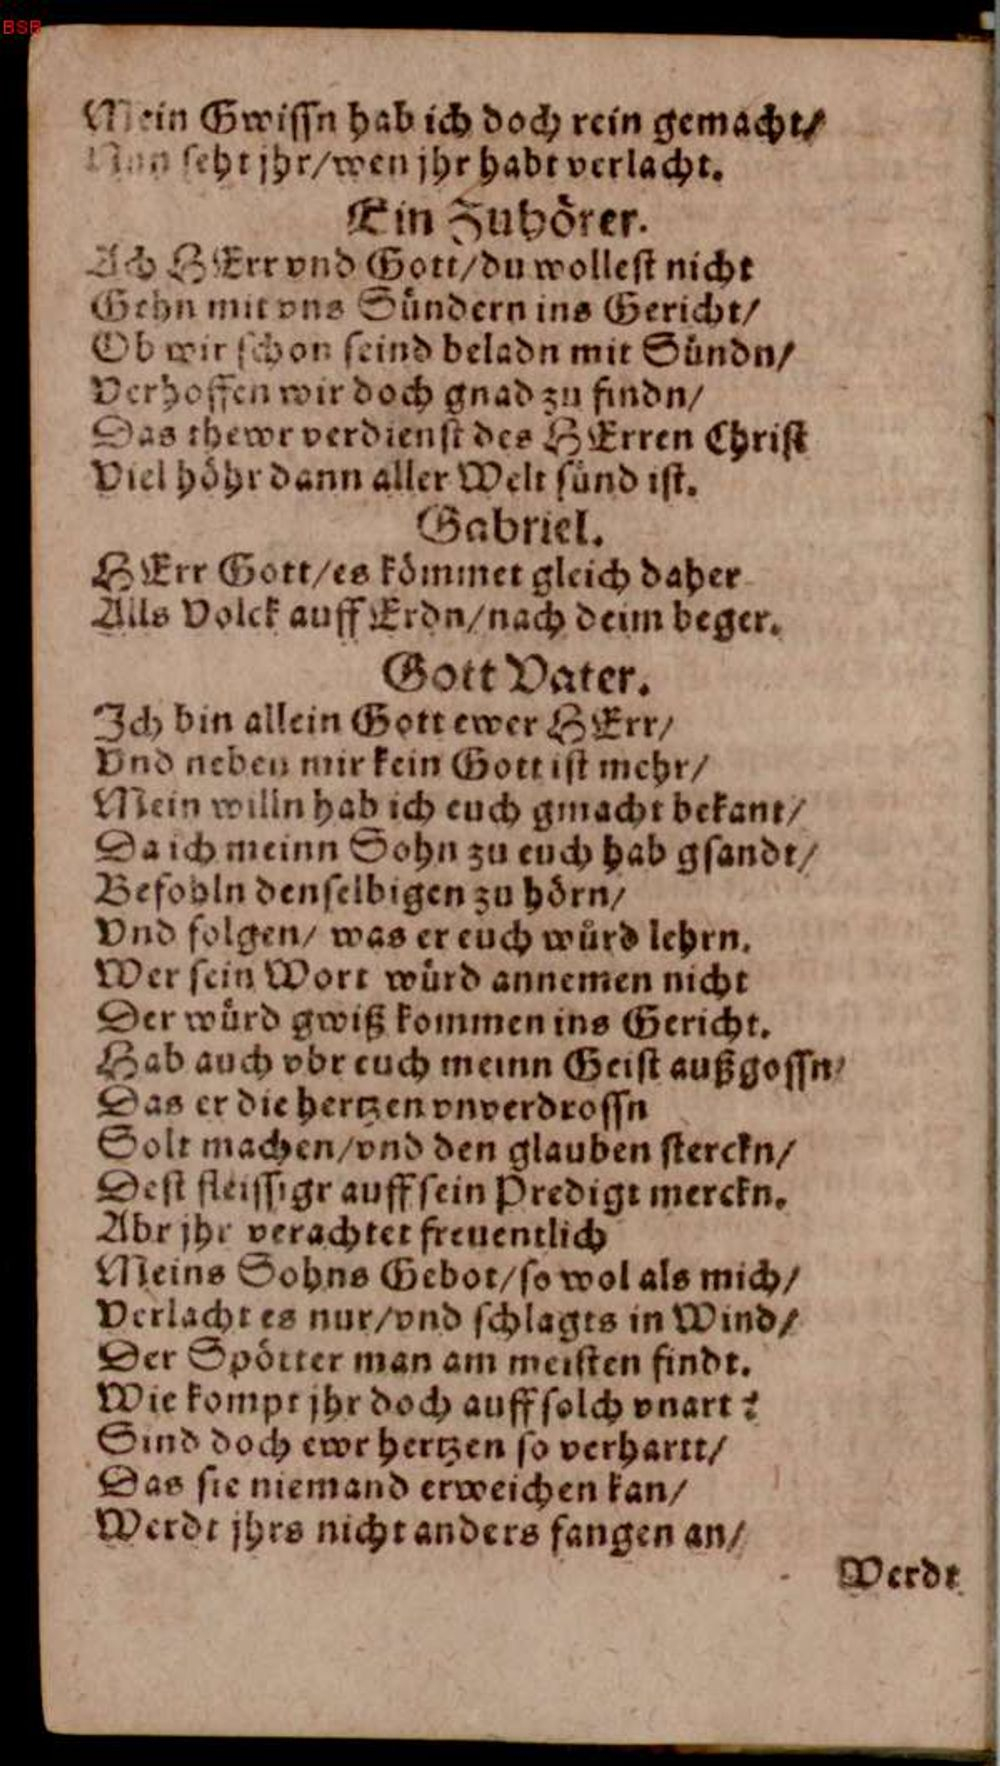 BSB
Mein Gwissn hab ich doch rein gemacht/
Nun seht jhr/wen jhr habt verlacht.
Ein Zuhörer.
Ach HErr vnd Gott/du wollest nicht
Gehn mit vns Sündern ins Gericht/
Ob wir schon seind beladn mit Sündn/
Verhoffen wir doch gnad zu findn/
Das thewr verdienst des HErren Christ
Viel höhr dann aller Welt sünd ist.
Gabriel.
HErr Gott/es kömmet gleich daher
Alls Volck auff Erdn/nach deim beger.
Gott Vater.
Ich bin allein Gott ewer HErr/
Vnd neben mir kein Gott ist mehr/
Mein willn hab ich euch gmacht bekant/
Da ich meinn Sohn zu euch hab gsandt/
Befohln denselbigen zu hörn/
Vnd folgen/ was er euch würd lehrn.
Wer sein Wort würd annemen nicht
Der würd gwiß kommen ins Gericht.
Hab auch vbr euch meinn Geist außgossn/
Das er die hertzen vnverdrossn
Solt machen/vnd den glauben sterckn/
Dest fleissigr auff sein Predigt merckn.
Abr jhr verachtet freuentlich
Meins Sohns Gebot/so wol als mich/
Verlacht es nur/vnd schlagts in Wind/
Der Spötter man am meisten findt.
Wie kompt jhr doch auff solch vnart?
Sind doch ewr hertzen so verhartt/
Das sie niemand erweichen kan/
Werdt jhrs nicht anders fangen an/
Werdt